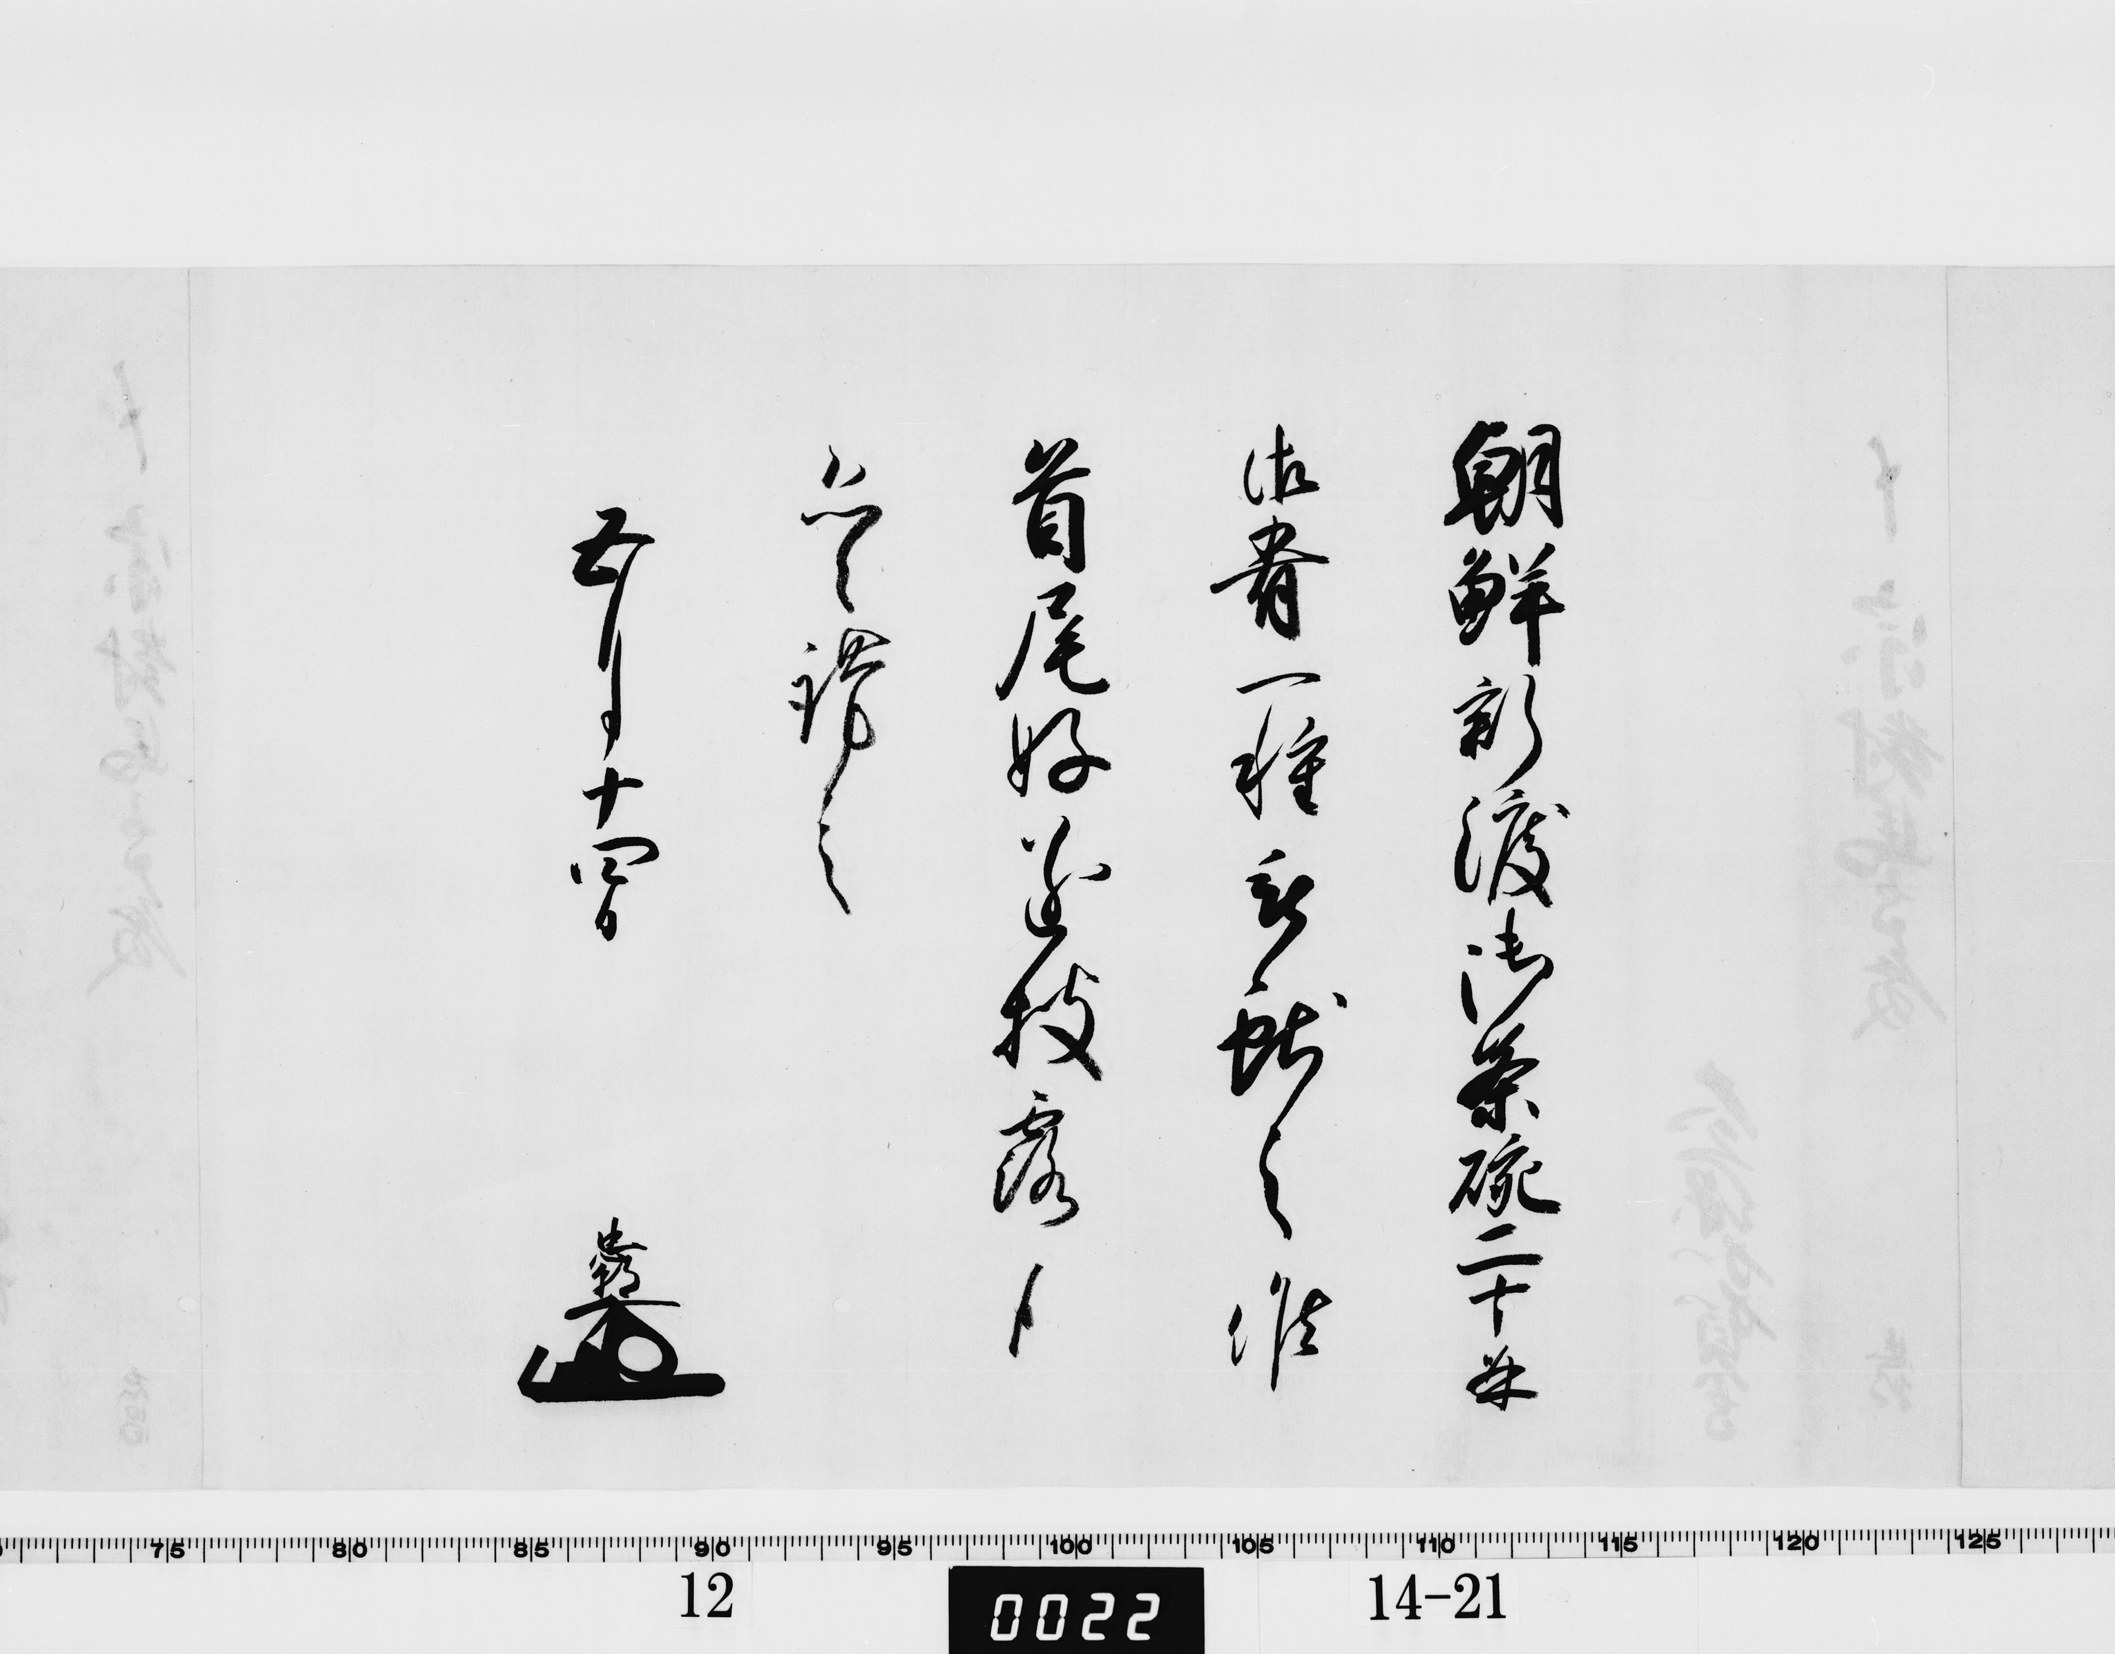 朝鮮新渡御茶碗二十并
御肴一種被献之候
首尾好遂披露候
恐々謹言
五月十四日
75 80 85 90 95 100 105 110 115 120 125
12 0022 14-21